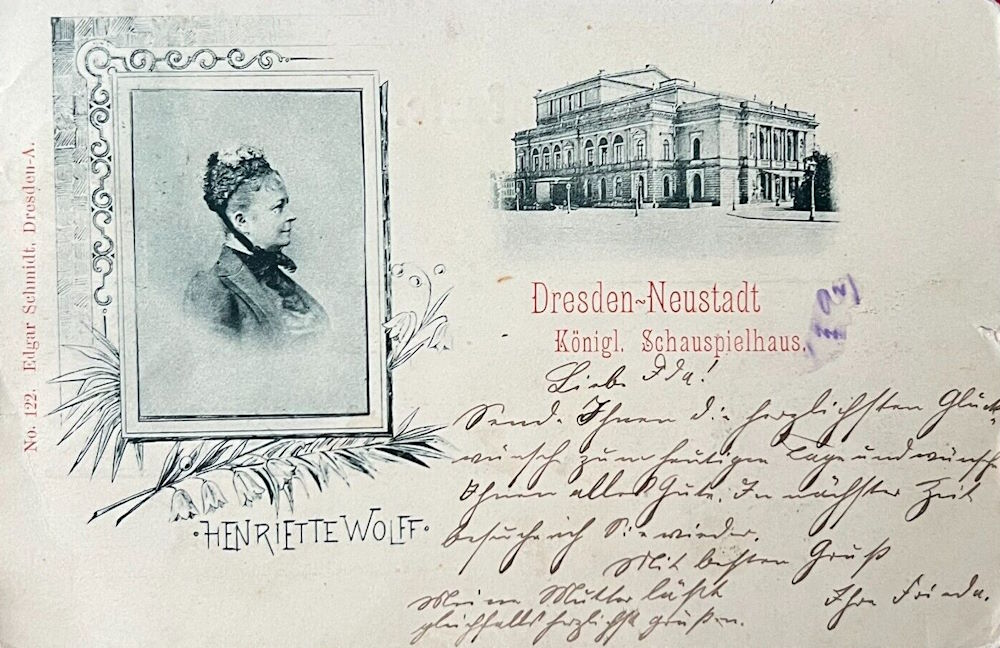 No. 122. Edgar Schmidt, Dresden-A.
·HENRIETTE WOLFF·
Dresden-Neustadt
Königl. Schauspielhaus.
Liebe Ida!
Sende Ihnen die herzlichsten Glück-
wünsche zum heutigen Tage und wünsche
Ihnen alles Gute. In nächster Zeit
besuche ich Sie wieder.
Mit besten Gruß
Ihre Frieda.
Meine Mutter läßt
gleichfalls herzlichst grüßen.